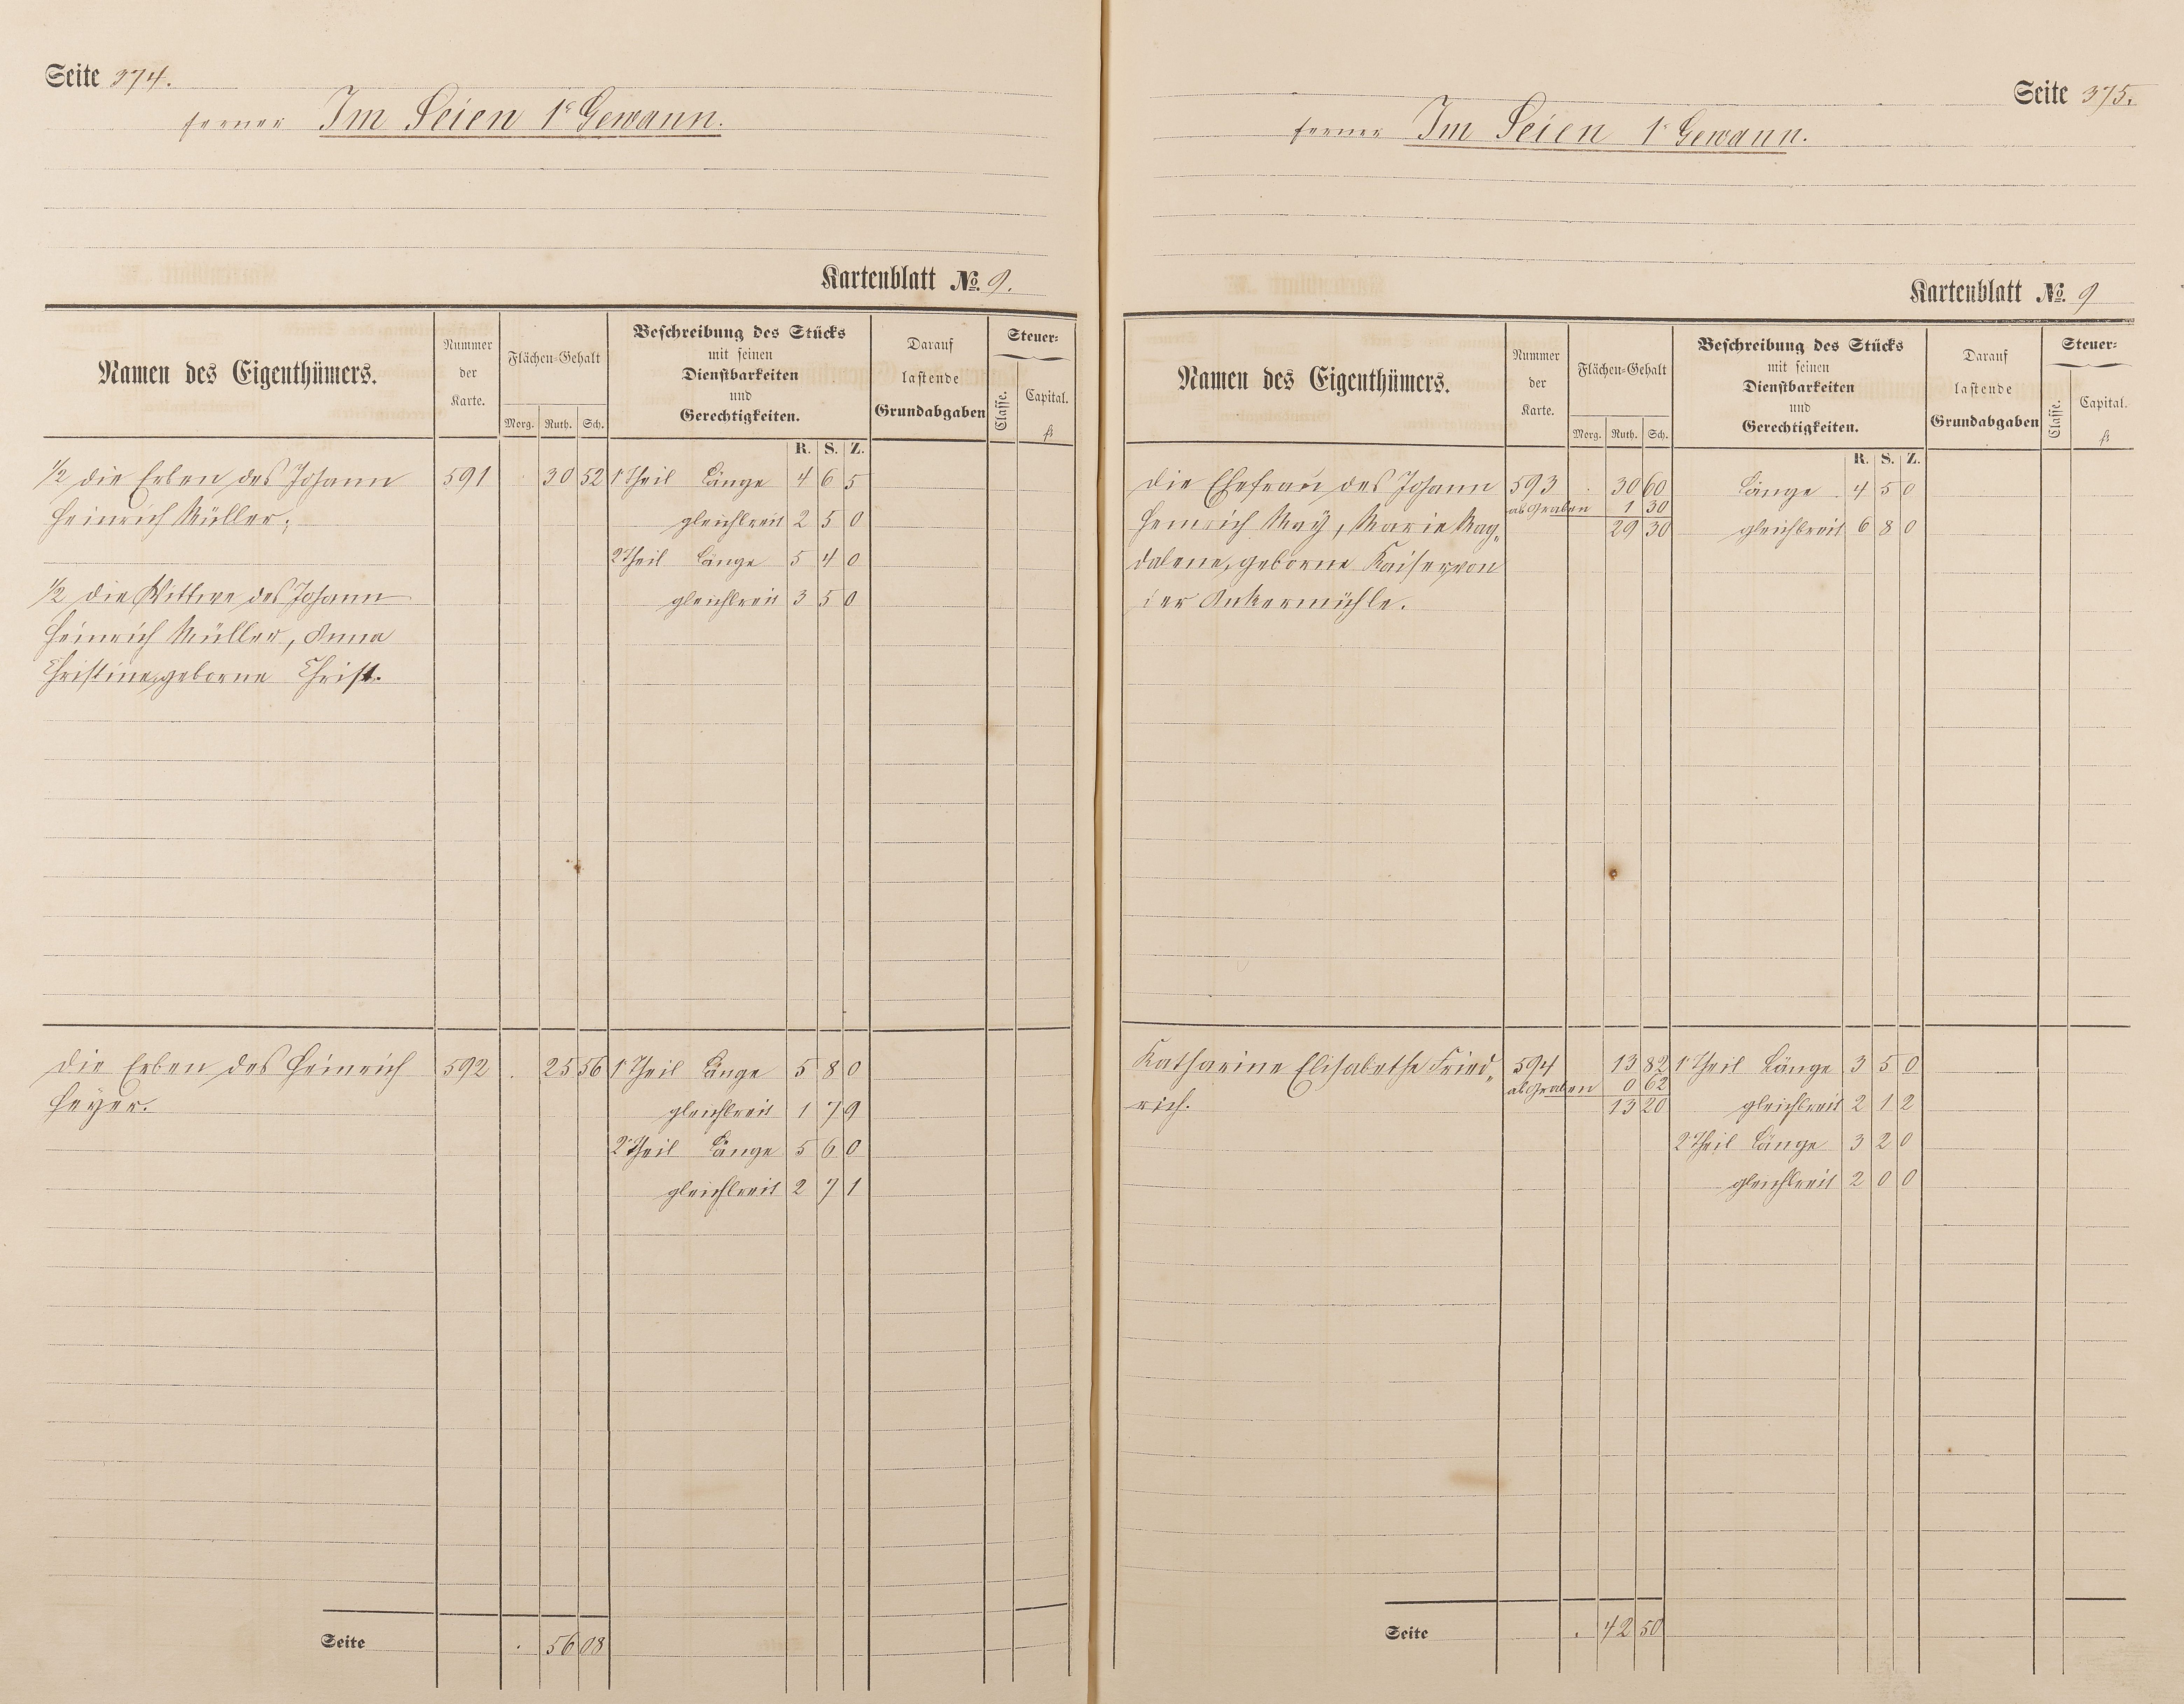 Seite 374.
ferner Im Seien 1r Gewann.
Kartenblatt No. 9.
Namen des Eigenthümers.
Nummer der Karte.
Flächen-Gehalt
Morg. Ruth. Sch.
Beschreibung des Stücks
mit seinen
Dienstbarkeiten
und
Gerechtigkeiten.
Darauf
lastende
Grundabgaben
Steuer-
Classe.
Capital.
fl
R. S. Z.
½ die Erben des Johann 591 . 30 52 1r Theil Länge 4 6 5
Heinrich Müller; gleichbreit 2 5 0
2r Theil Länge 5 4 0
½ die Wittwe des Johann gleichbreit 3 5 0
Heinrich Müller, Anna
Christine, geborne Christ.
die Erben des Heinrich 592 . 25 56 1r Theil Länge 5 8 0
Heyer. gleichbreit 1 7 9
2r Theil Länge 5 6 0
gleichbreit 2 7 1
Seite . 56 08
Seite 375.
ferner Im Seien 1r Gewann.
Kartenblatt No. 9
Namen des Eigenthümers.
Nummer der Karte.
Flächen-Gehalt
Morg. Ruth. Sch.
Beschreibung des Stücks
mit seinen
Dienstbarkeiten
und
Gerechtigkeiten.
Darauf
lastende
Grundabgaben
Steuer-
Classe.
Capital.
fl
R. S. Z.
die Ehefrau des Johann 593 . 30 60 Länge 4 5 0
ab Graben 1 30
Heinrich Maÿ, Marie Mag- 29 30 gleichbreit 6 8 0
dalene, geborne Kaiser, von
der Ankermühle.
Katharine Elisabethe Fried- 594 13 82 1r Theil Länge 3 5 0
ab Graben 0 62
rich. 13 20 gleichbreit 2 1 2
2r Theil Länge 3 2 0
gleichbreit 2 0 0
Seite . 42 50